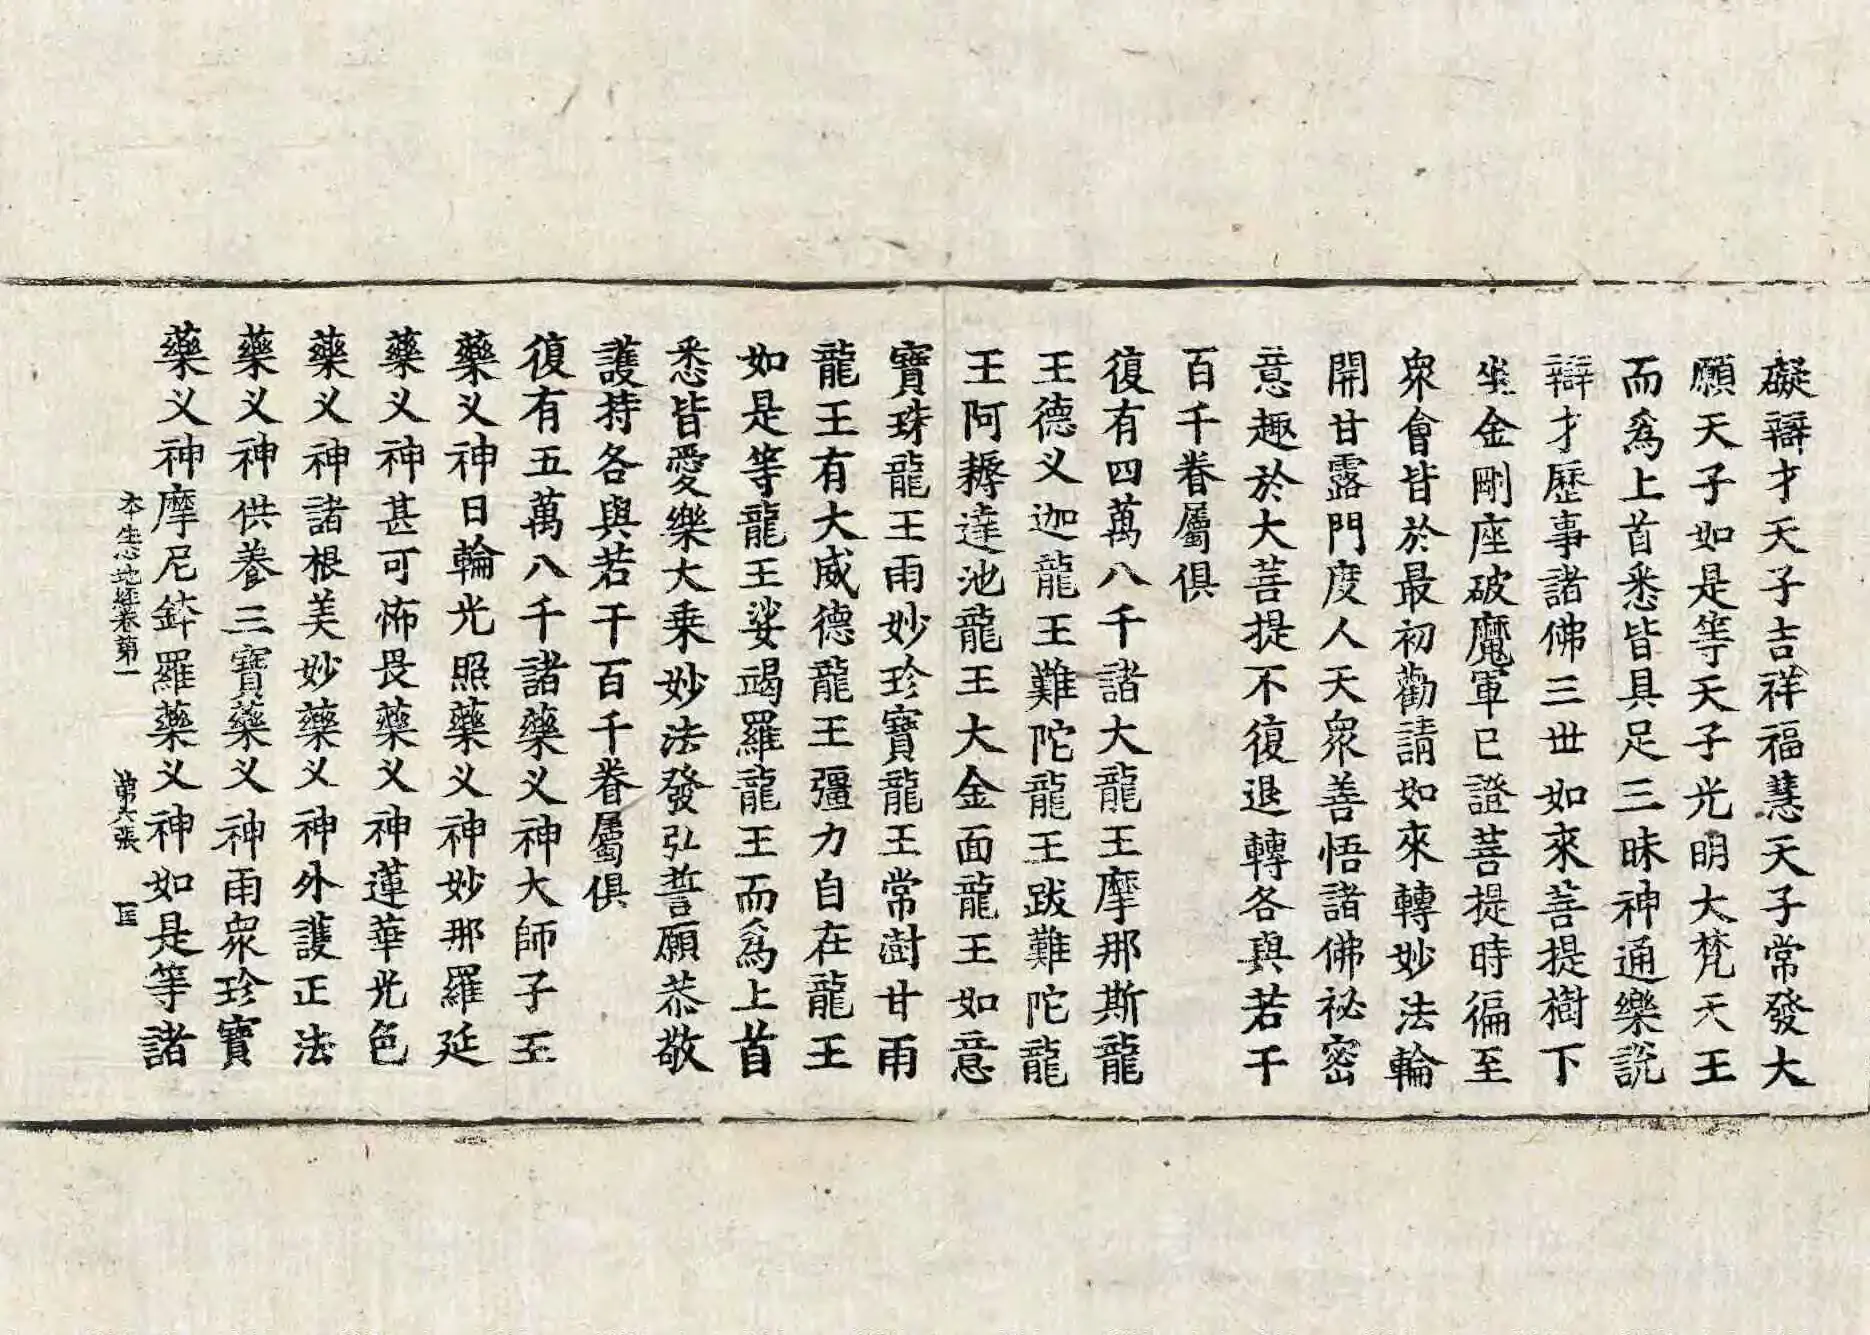 礙辯才天子吉祥福慧天子常發大
願天子如是等天子光明大梵天王
而爲上首悉皆具足三昧神通樂說
辯才歷事諸佛三世如來菩提樹下
坐金剛座破魔軍已證菩提時徧至
衆會皆於最初勸請如來轉妙法輪
開甘露門度人天衆善悟諸佛祕密
意趣於大菩提不復退轉各與若干
百千眷屬俱
復有四萬八千諸大龍王摩那斯龍
王德义迦龍王難陀龍王跋難陀龍
王阿耨達池龍王大金面龍王如意
寶珠龍王雨妙珍寶龍王常澍甘雨
龍王有大威德龍王彊力自在龍王
如是等龍王娑竭羅龍王而爲上首
悉皆愛樂大乗妙法發弘誓願恭敬
護持各與若干百千眷屬俱
復有五萬八千諸藥义神大師子王
藥义神日輪光照藥义神妙那羅延
藥义神甚可怖畏藥义神蓮華光色
藥义神諸根美妙藥义神外護正法
藥义神供養三寶藥义神雨衆珍寶
藥义神摩尼鉢羅藥义神如是等諸
本生心地經卷第一 第六張 匡